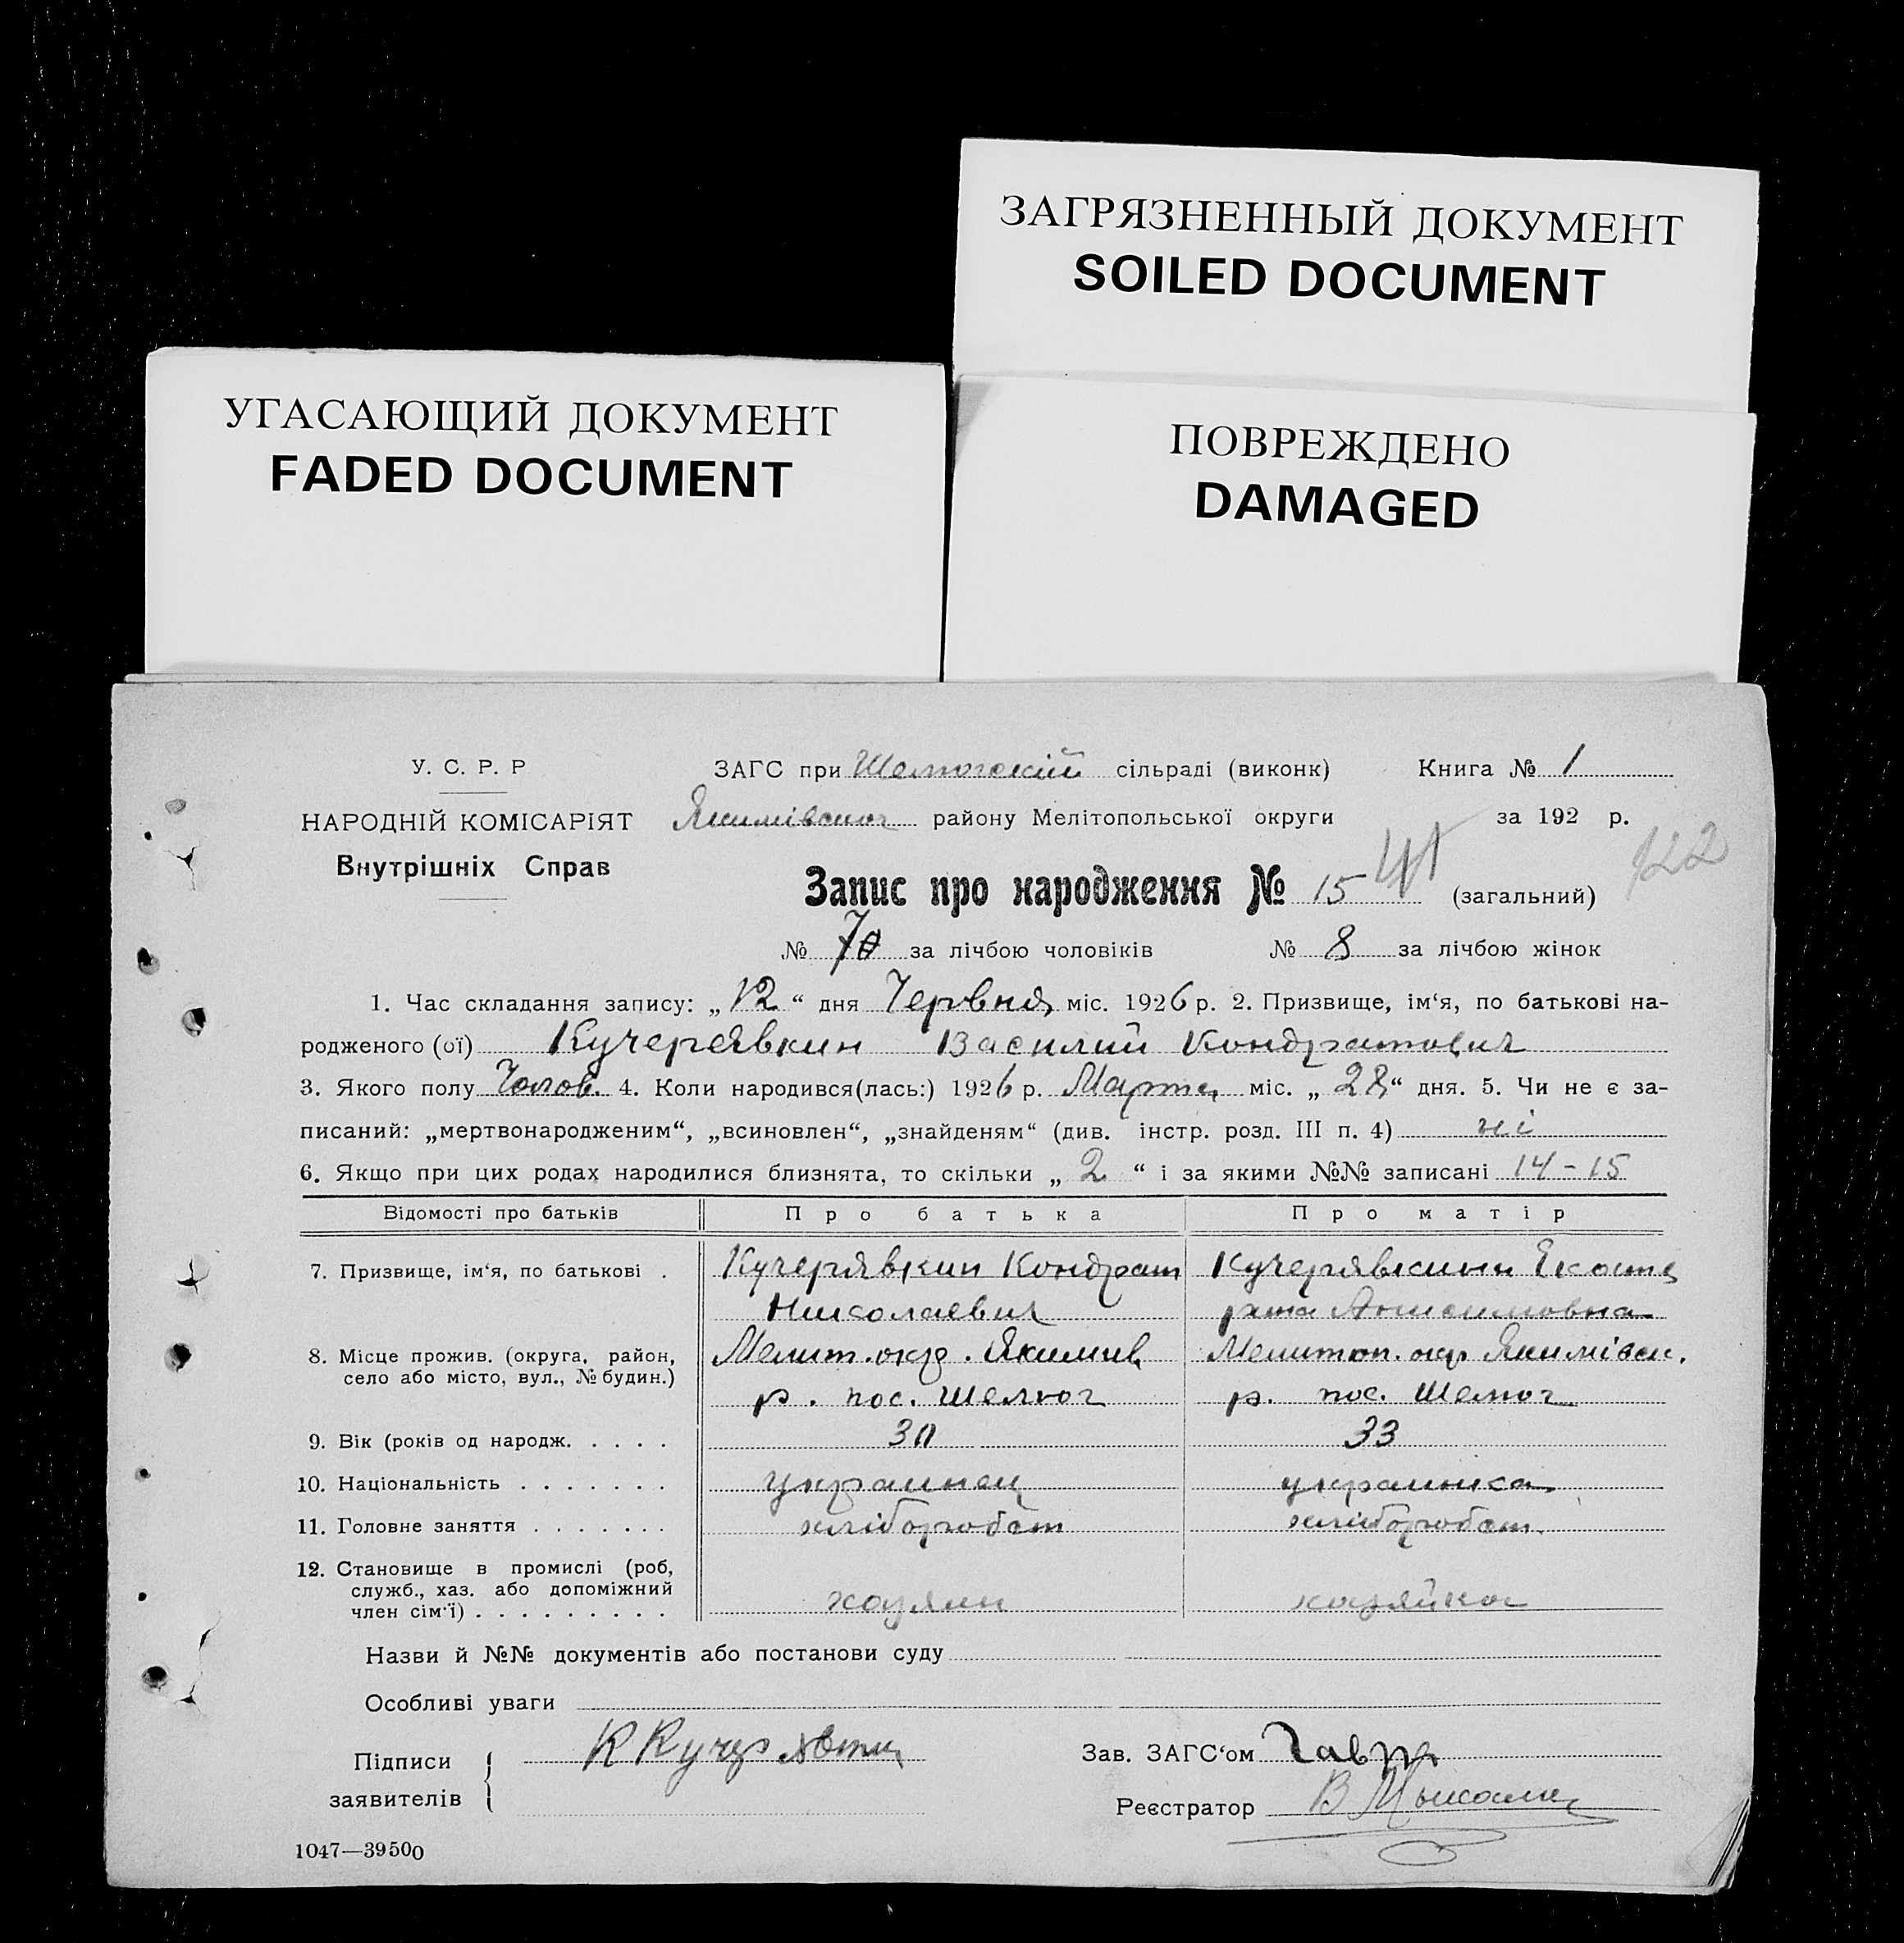 ЗАГРЯЗНЕННЫЙ ДОКУМЕНТ
SOILED DOCUMENT
УГАСАЮЩИЙ ДОКУМЕНТ
FADED DOCUMENT
ПОВРЕЖДЕНО
DAMAGED
У. С. Р. Р
НАРОДНІЙ КОМІСАРІЯТ
Внутрішніх Справ
ЗАГС при Шелюгській сільраді (виконк)
Книга № 1
району Мелітопольської округи
за 192 р.
122
Запис про народження № 15 (загальний)
№ за лічбою чоловіків № 8 за лічбою жінок
1. Час складання запису: „12“ дня Червня міс. 1926 р. 2. Призвище, ім‘я, по батькові на-
родженого (ої) Кучерявкин Василий Кондратович
3. Якого полу Чолов. 4. Коли народився(лась:) 1926 р. Марта міс. „28“ дня. 5. Чи не є за-
писаний: „мертвонародженим“, „всиновлен“, „знайденям“ (див. інстр. розд. III п. 4) ні
6. Якщо при цих родах народилися близнята, то скільки „2“ і за якими №№ записані 14-15
Відомості про батьків Про батька Про матір
7. Призвище, ім‘я, по батькові . Кучерявкин Кондрат Кучерявкина Екате
Николаевич рина Анисимовна
8. Місце прожив. (округа, район, село або місто, вул., № будин.) Мелит. окр. Якимив Мелитоп. окр Якимівск.
р. пос. Шелюг р. пос. Шелюг
9. Вік (років од народж. . . . . 30 33
10. Національність . . . . . . . украинец украинка
11. Головне заняття . . . . . . . хліборобот. хліборобот. 
12. Становище в промислі (роб, служб., хаз. або допоміжний член сім‘ї) . . . . . . . . . хозяин хозяйка
Назви й №№ документів або постанови суду
Особливі уваги
Підписи
заявителів
К Кучерявкин
Зав. ЗАГС‘ом
Реєстратор
1047—39500